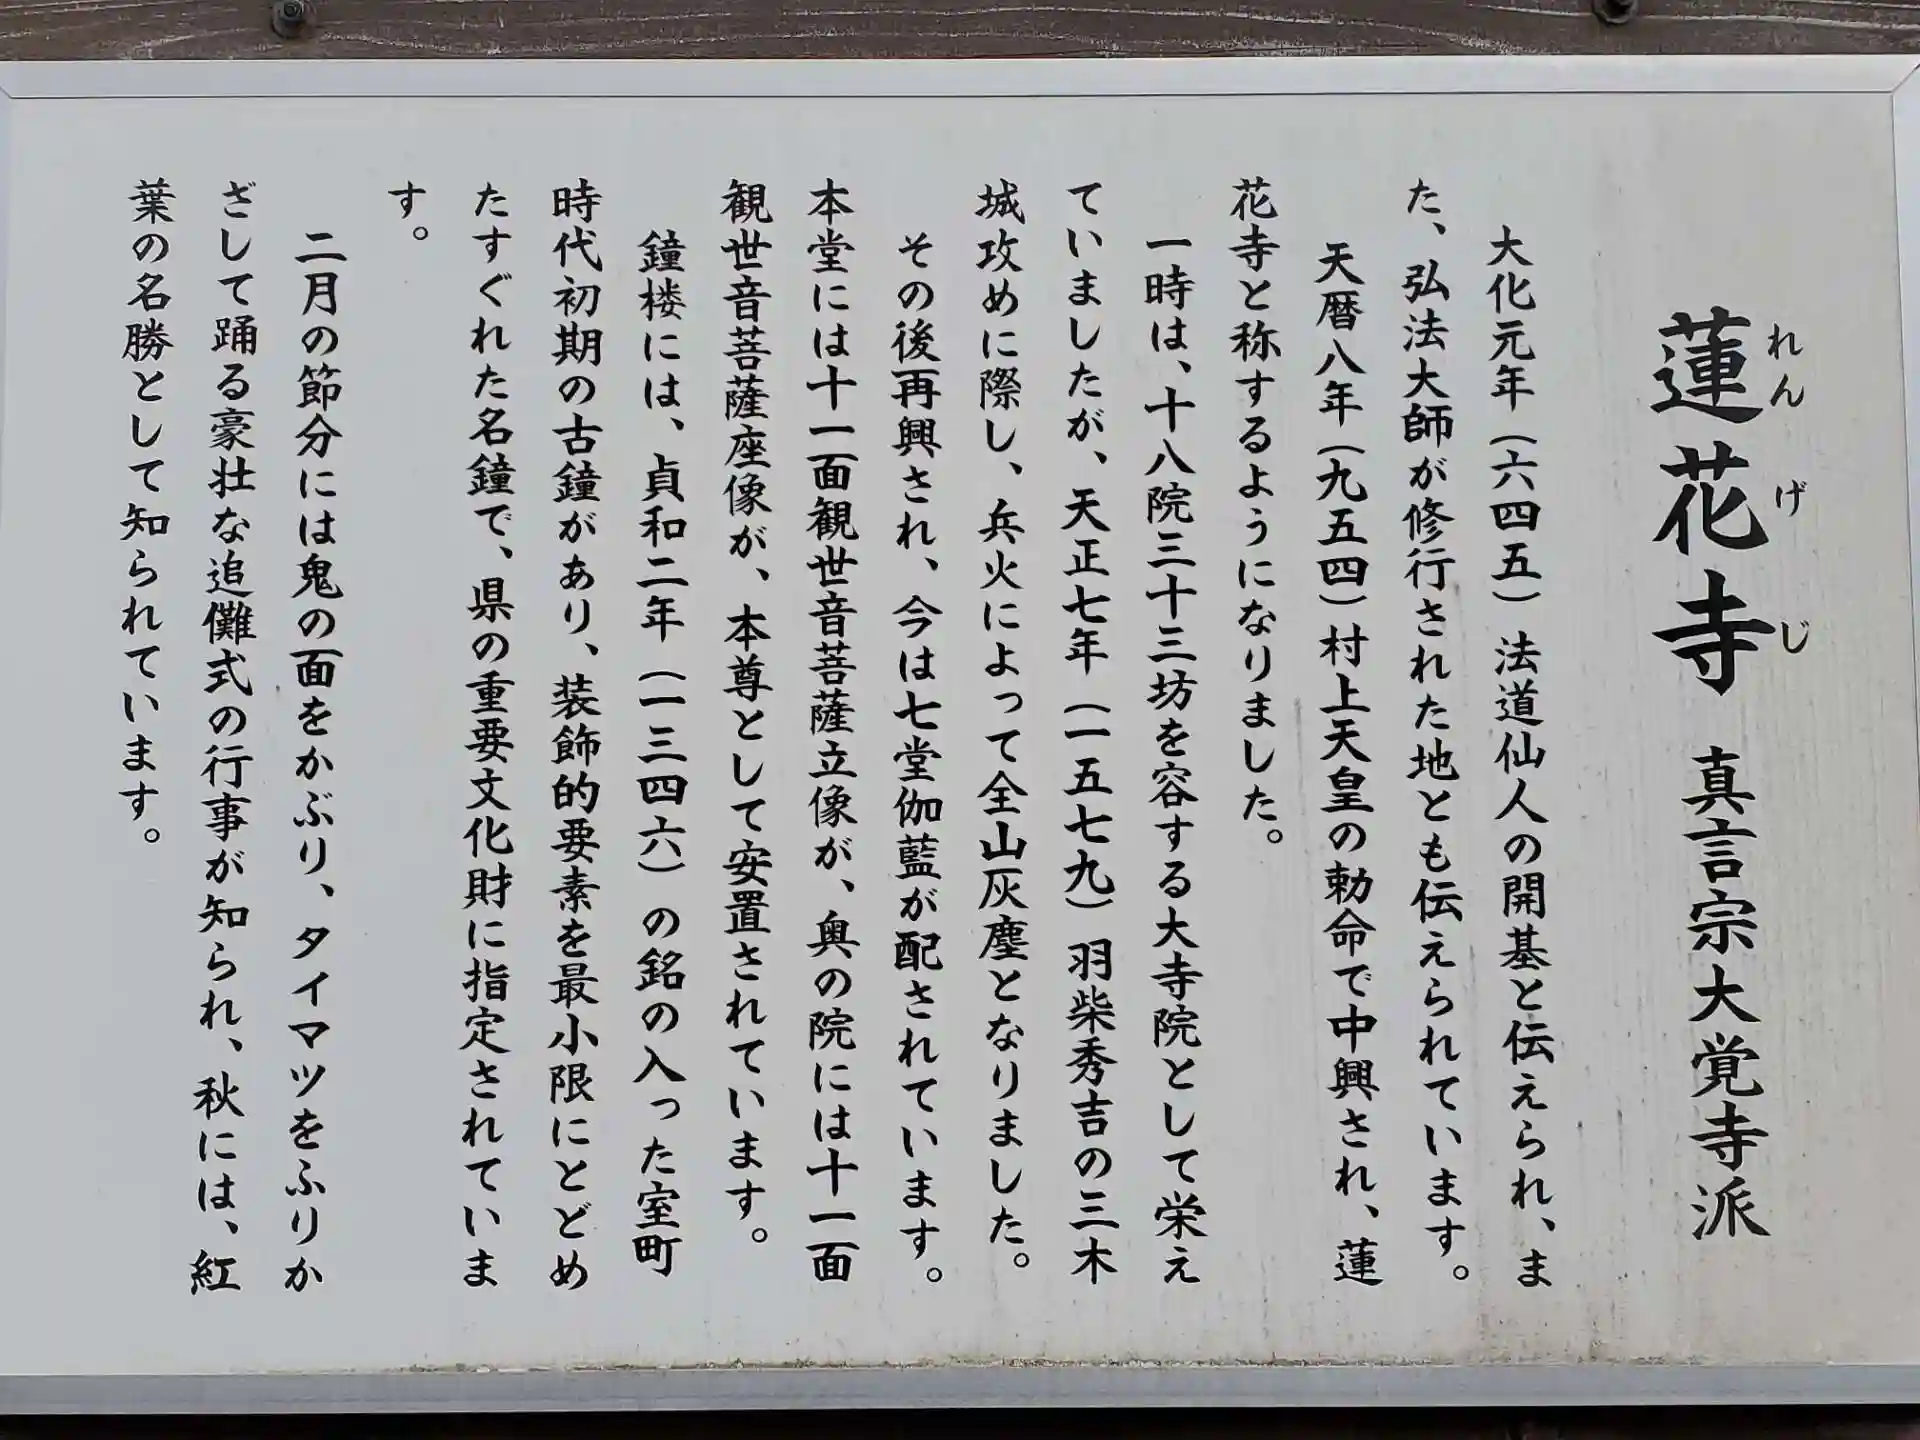 蓮花寺 真言宗大覚寺派
れんげじ
大化元年（六四五）法道仙人の開基と伝えられ、ま
た、弘法大師が修行された地とも伝えられています。
天暦八年（九五四）村上天皇の勅命で中興され、蓮
花寺と称するようになりました。
一時は、十八院三十三坊を容する大寺院として栄え
ていましたが、天正七年（一五七九）羽柴秀吉の三木
城攻めに際し、兵火によって全山灰塵となりました。
その後再興され、今は七堂伽藍が配されています。
本堂には十一面観世音菩薩立像が、奥の院には十一面
観世音菩薩座像が、本尊として安置されています。
鐘楼には、貞和二年（一三四六）の銘の入った室町
時代初期の古鐘があり、装飾的要素を最小限にとどめ
たすぐれた名鐘で、県の重要文化財に指定されていま
す。
二月の節分には鬼の面をかぶり、タイマツをふりか
ざして踊る豪壮な追儺式の行事が知られ、秋には、紅
葉の名勝として知られています。